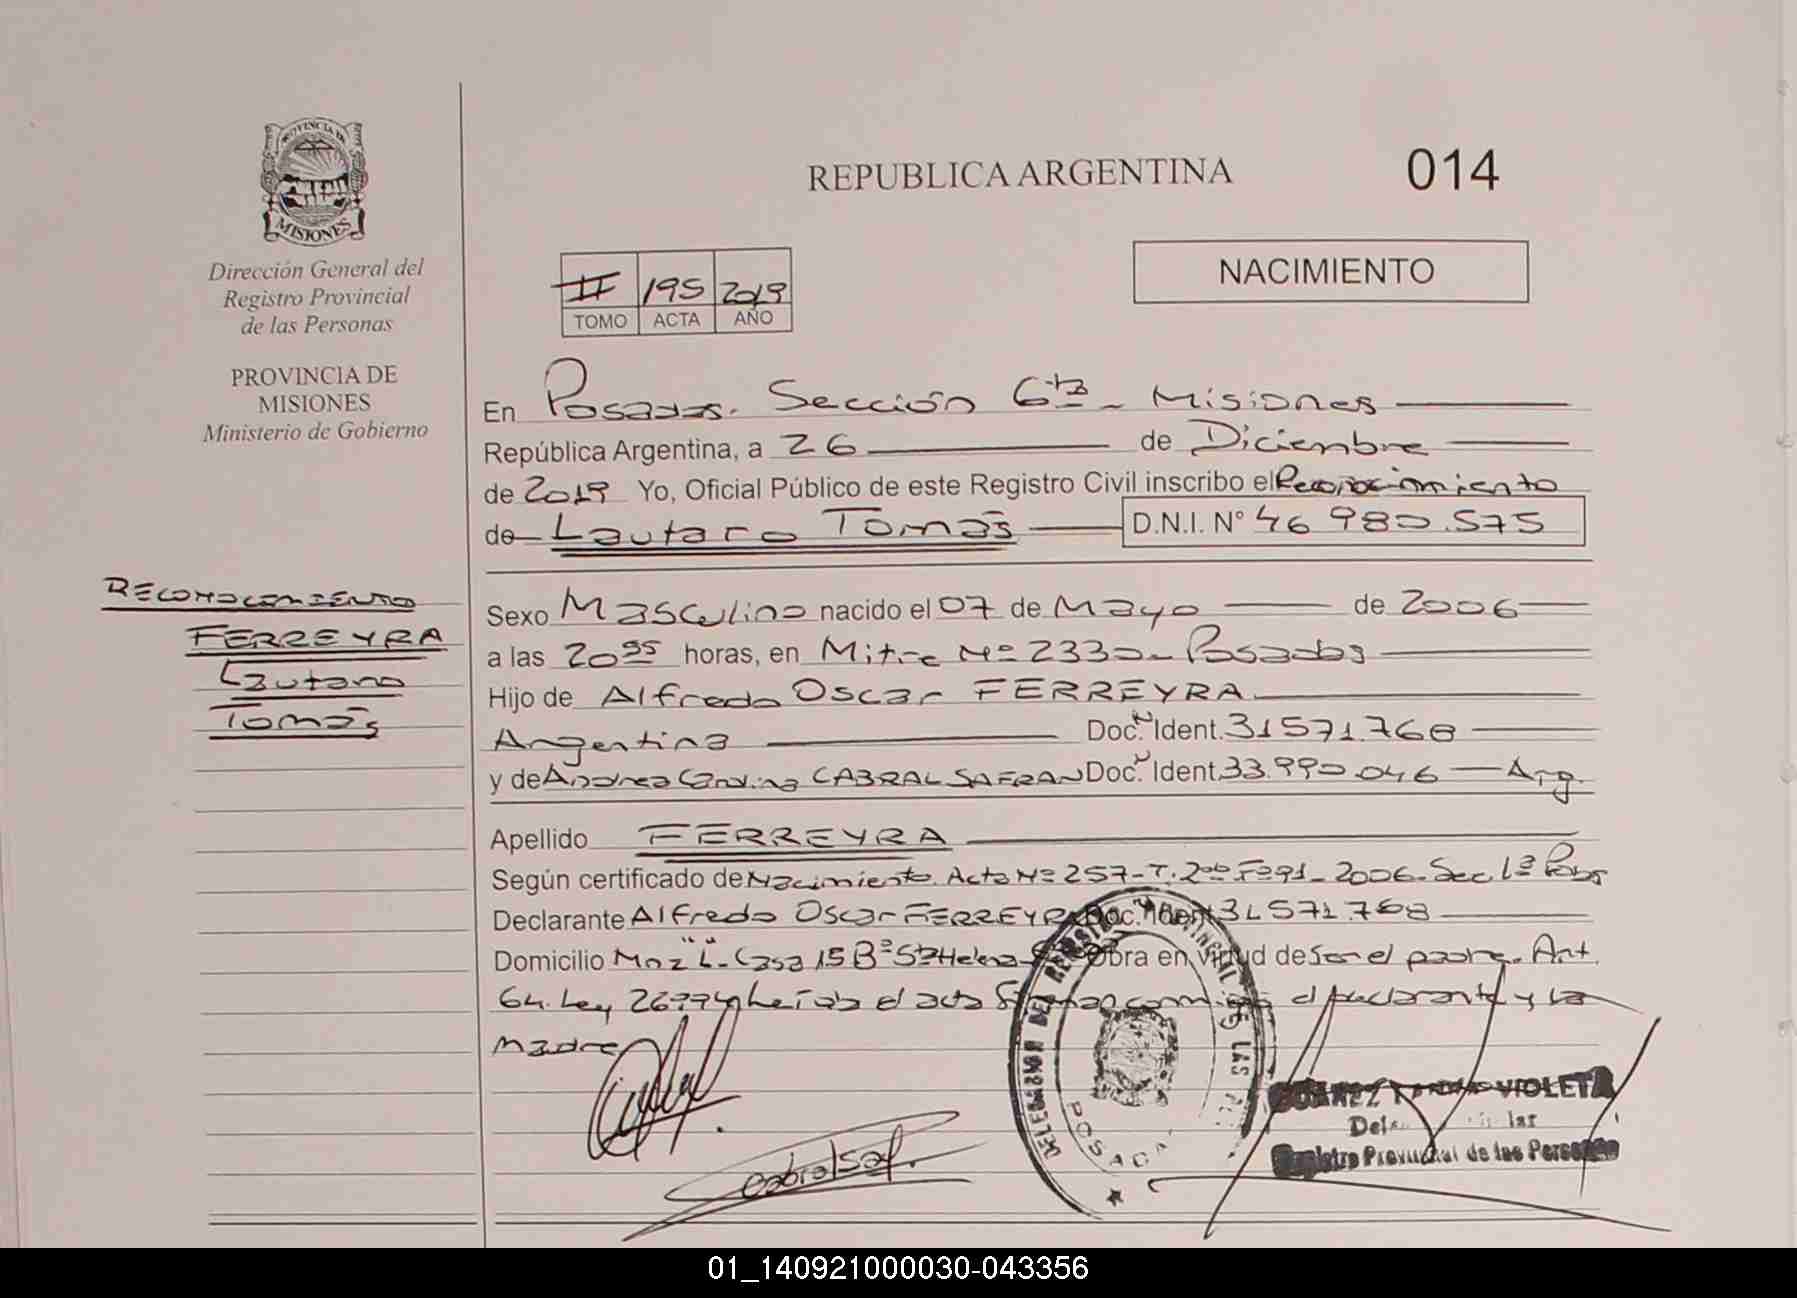 PROVINCIA DE
MISIONES
Dirección General del
Registro Provincial
de las Personas
PROVINCIA DE
MISIONES
Ministerio de Gobierno
REPUBLICA ARGENTINA
014
II 195 2019
TOMO ACTA AÑO
NACIMIENTO
En Posadas. Sección 6ta - Misiones
República Argentina, a 26 de Diciembre
de 2019 Yo, Oficial Público de este Registro Civil inscribo el Reconocimiento
de Lautaro Tomás D.N.I. N° 46 980.575
RECONOCIMIENTO
FERREYRA
Lautaro
Tomás
Sexo Masculino nacido el 07 de Mayo de 2006
a las 20 horas, en Mitre Nº 2330 - Posadas
Hijo de Alfredo Oscar FERREYRA
Argentina Doc. Ident. 31571.768
y de Andrea Carolina CABRAL SAFRAN Doc. Ident. 33.990.046 - Arg.
Apellido FERREYRA
Según certificado de Nacimiento. Acta Nº 257- T. 2do Fº 91 - 2006. Sec 1ª Pdas
Declarante Alfredo Oscar FERREYRA Doc. Ident. 31571.768
Domicilio Mnz "L" - Casa 15 Bº Sta Helena Obra en virtud de Ser el padre. Art.
64. Ley 26994 leída el acta Firman conmigo el declarante y la
Madre
Cabral Saf.
DELEGACION DEL REGISTRO PROVINCIAL DE LAS
POSADAS
VIOLETA
Registro Provincial de las Personas
01_140921000030-043356